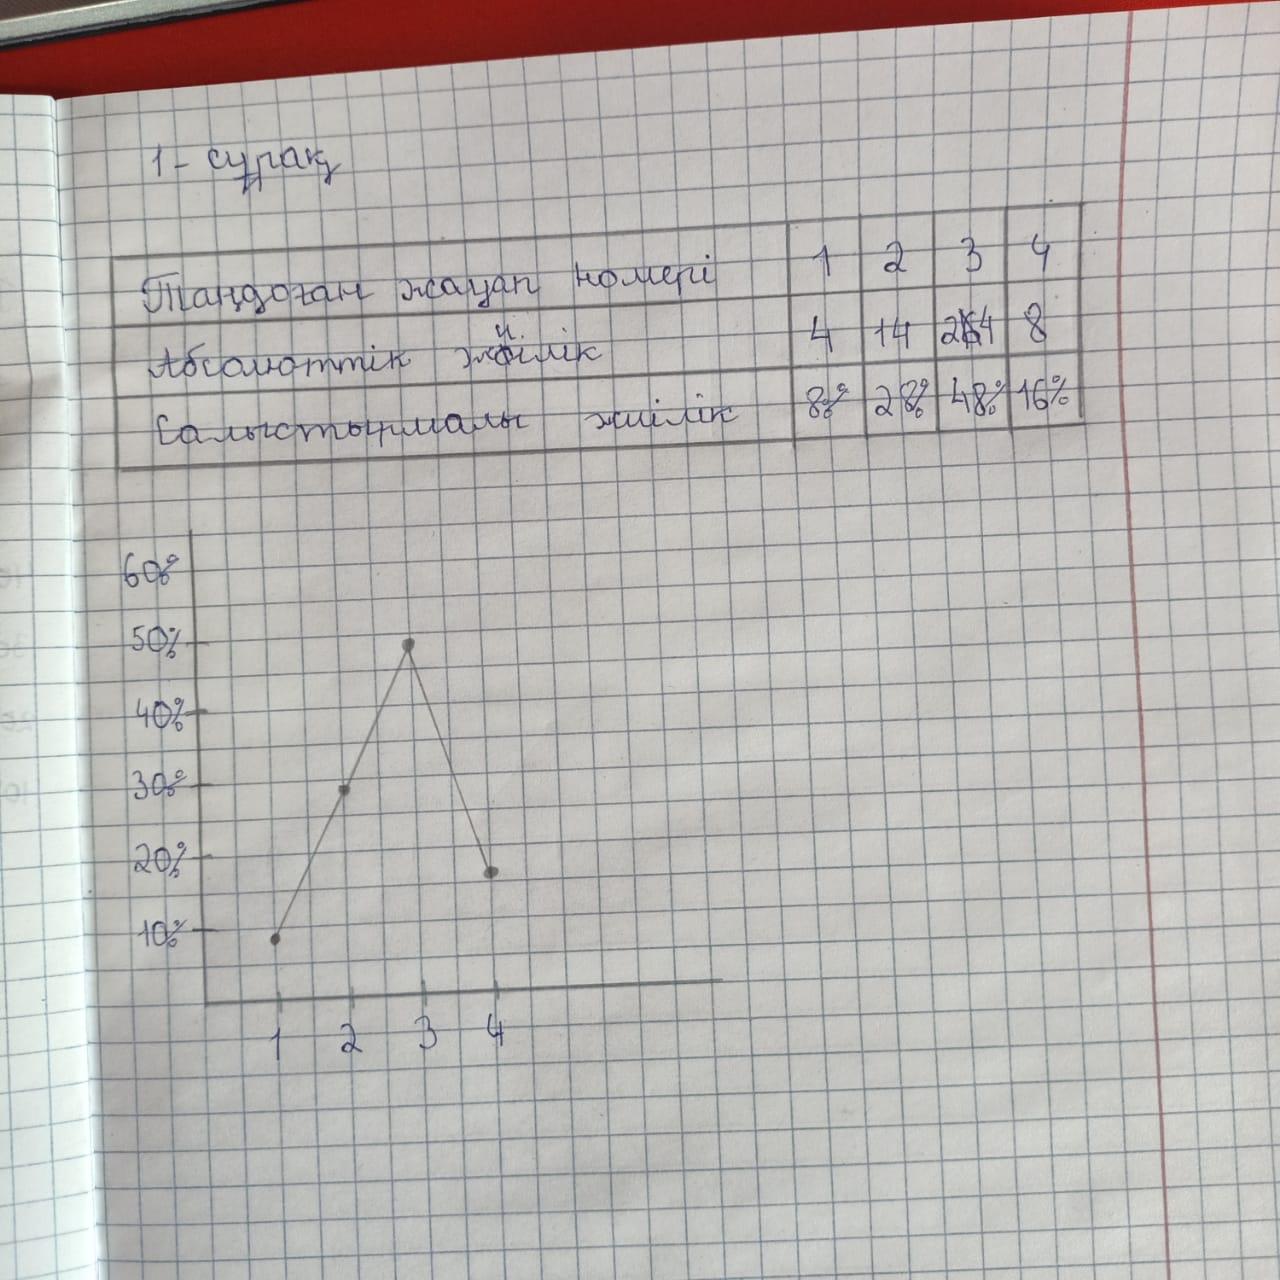 1- сұрақ
Таңдаған жауап номері 1 2 3 4
Абсолюттік жиілік 4 14 24 8
Салыстырмалы жиілік 8% 28% 48% 16%
60%
50%
40%
30%
20%
10%
1 2 3 4